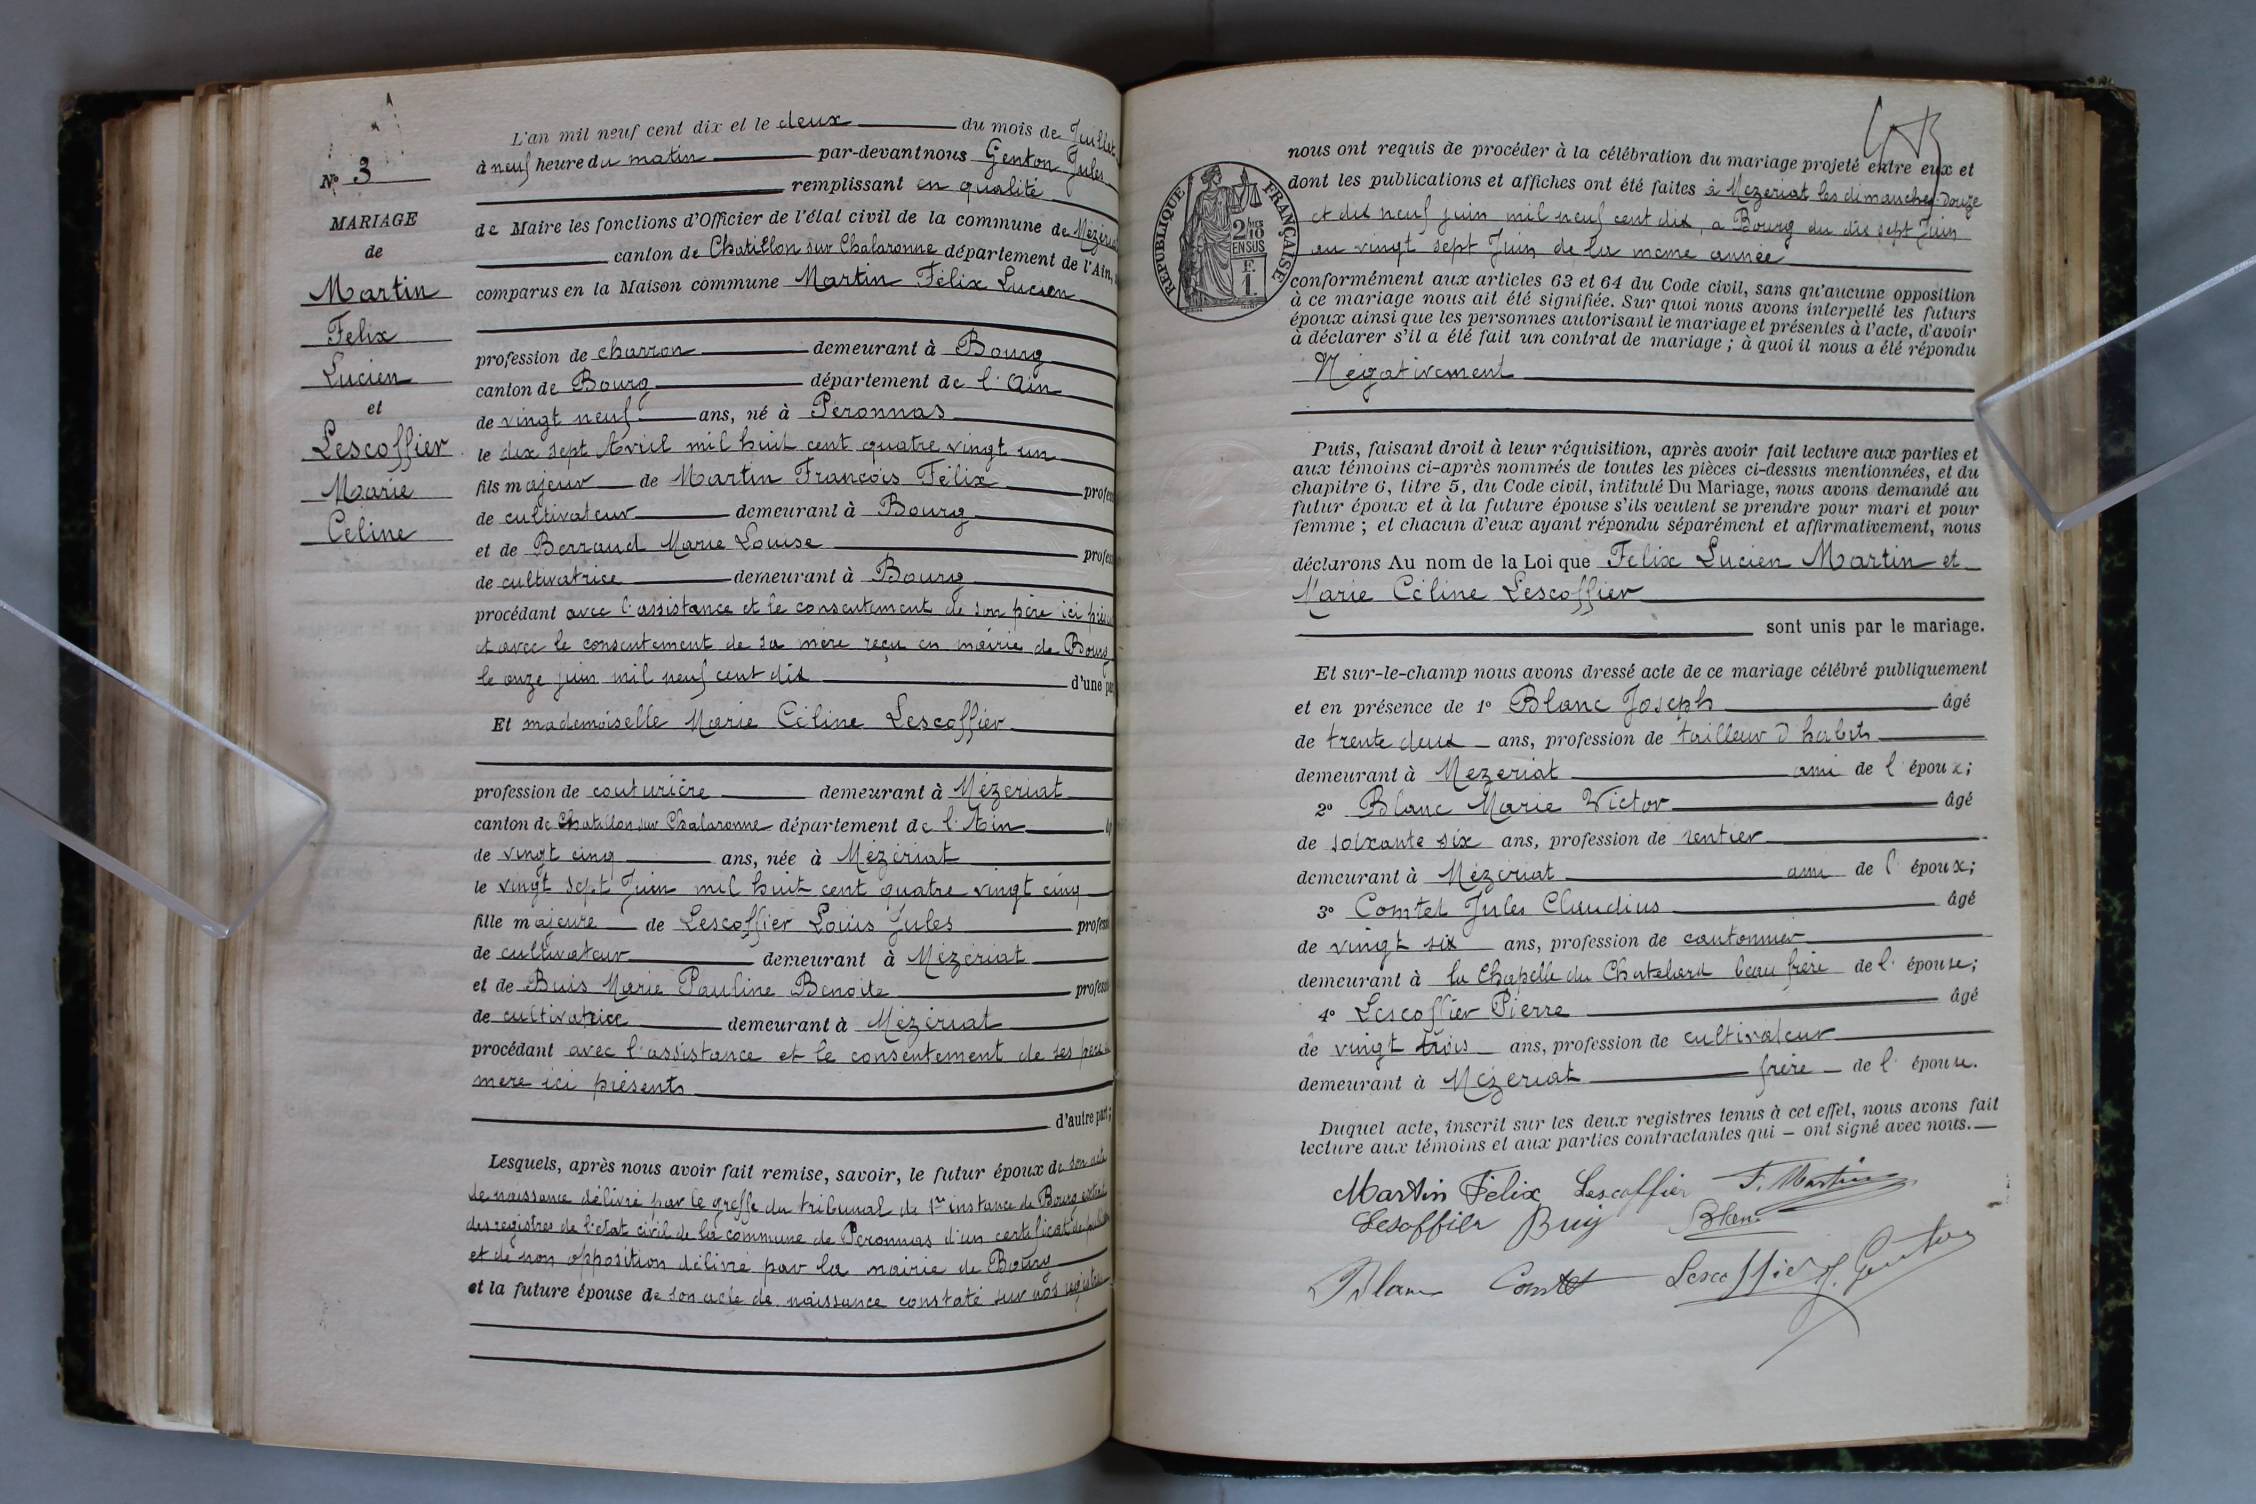 Nº 3
MARIAGE
de
Martin
Felix
Lucien
et
Lescoffier
Marie
Céline
L'an mil neuf cent dix et le deux du mois de Juillet
à neuf heure du matin par-devant nous Genton Jules
remplissant en qualité
de Maire les fonctions d'Officier de l'état civil de la commune de Mézériat
canton de Chatillon sur Chalaronne département de l'Ain,
comparus en la Maison commune Martin Félix Lucien
profession de charron demeurant à Bourg
canton de Bourg département de l'Ain
de vingt neuf ans, né à Péronnas
le dix sept Avril mil huit cent quatre vingt un
fils majeur de Martin François Félix profes
de cultivateur demeurant à Bourg
et de Berraud Marie Louise profes
de cultivatrice demeurant à Bourg
procédant avec l'assistance et le consentement de son père ici prés
et avec le consentement de sa mère reçu en mairie de Bourg
le onze juin mil neuf cent dix d'une pa
Et mademoiselle Marie Céline Lescoffier
profession de couturière demeurant à Mézériat
canton de Chatillon sur Chalaronne département de l'Ain
de vingt cinq ans, née à Mézériat
le vingt sept Juin mil huit cent quatre vingt cinq
fille majeure de Lescoffier Louis Jules profess
de cultivateur demeurant à Mézériat
et de Buis Marie Pauline Benoite profess
de cultivatrice demeurant à Mézériat
procédant avec l'assistance et le consentement de ses père
mere ici présents
d'autre part;
Lesquels, après nous avoir fait remise, savoir, le futur époux de son acte
de naissance délivré par le greffe du tribunal de 1re instance de Bourg extrait
des registres de l'état civil de la commune de Péronnas d'un certificat de
et de non opposition délivré par la mairie de Bourg
et la future épouse de son acte de naissance constaté sur nos registres
RÉPUBLIQUE FRANÇAISE
2/10
EN SUS
F.
1.
nous ont requis de procéder à la célébration du mariage projeté entre eux et
dont les publications et affiches ont été faites à Mézeriat les dimanches douze
et dix neuf juin mil neuf cent dix, a Bourg du dix sept Juin
au vingt sept Juin de la meme année
conformément aux articles 63 et 64 du Code civil, sans qu'aucune opposition
à ce mariage nous ait été signifiée. Sur quoi nous avons interpellé les futurs
époux ainsi que les personnes autorisant le mariage et présentes à l'acte, d'avoir
à déclarer s'il a été fait un contrat de mariage; à quoi il nous a été répondu
Négativement
Puis, faisant droit à leur réquisition, après avoir fait lecture aux parties et
aux témoins ci-après nommés de toutes les pièces ci-dessus mentionnées, et du
chapitre 6, titre 5, du Code civil, intitulé Du Mariage, nous avons demandé au
futur époux et à la future épouse s'ils veulent se prendre pour mari et pour
femme; et chacun d'eux ayant répondu séparément et affirmativement, nous
déclarons Au nom de la Loi que Felix Lucien Martin et
Marie Céline Lescoffier
sont unis par le mariage.
Et sur-le-champ nous avons dressé acte de ce mariage célébré publiquement
et en présence de 1º Blanc Joseph âgé
de trente deux ans, profession de tailleur d habits
demeurant à Mezeriat ami de l'époux;
2º Blanc Marie Victor âgé
de soixante six ans, profession de rentier
demeurant à Mézériat ami de l'époux;
3º Comtet Jules Claudius âgé
de vingt six ans, profession de cantonnier
demeurant à la Chapelle du Chatelard beau frère de l'épouse;
4º Lescoffier Pierre âgé
de vingt trois ans, profession de cultivateur
demeurant à Mézeriat frère de l'épouse.
Duquel acte, inscrit sur les deux registres tenus à cet effet, nous avons fait
lecture aux témoins et aux parties contractantes qui — ont signé avec nous.
Martin Félix Lescoffier F. Martin
Lesoffier Buis Blanc
Blanc Comtet Lescoffier J. Genton